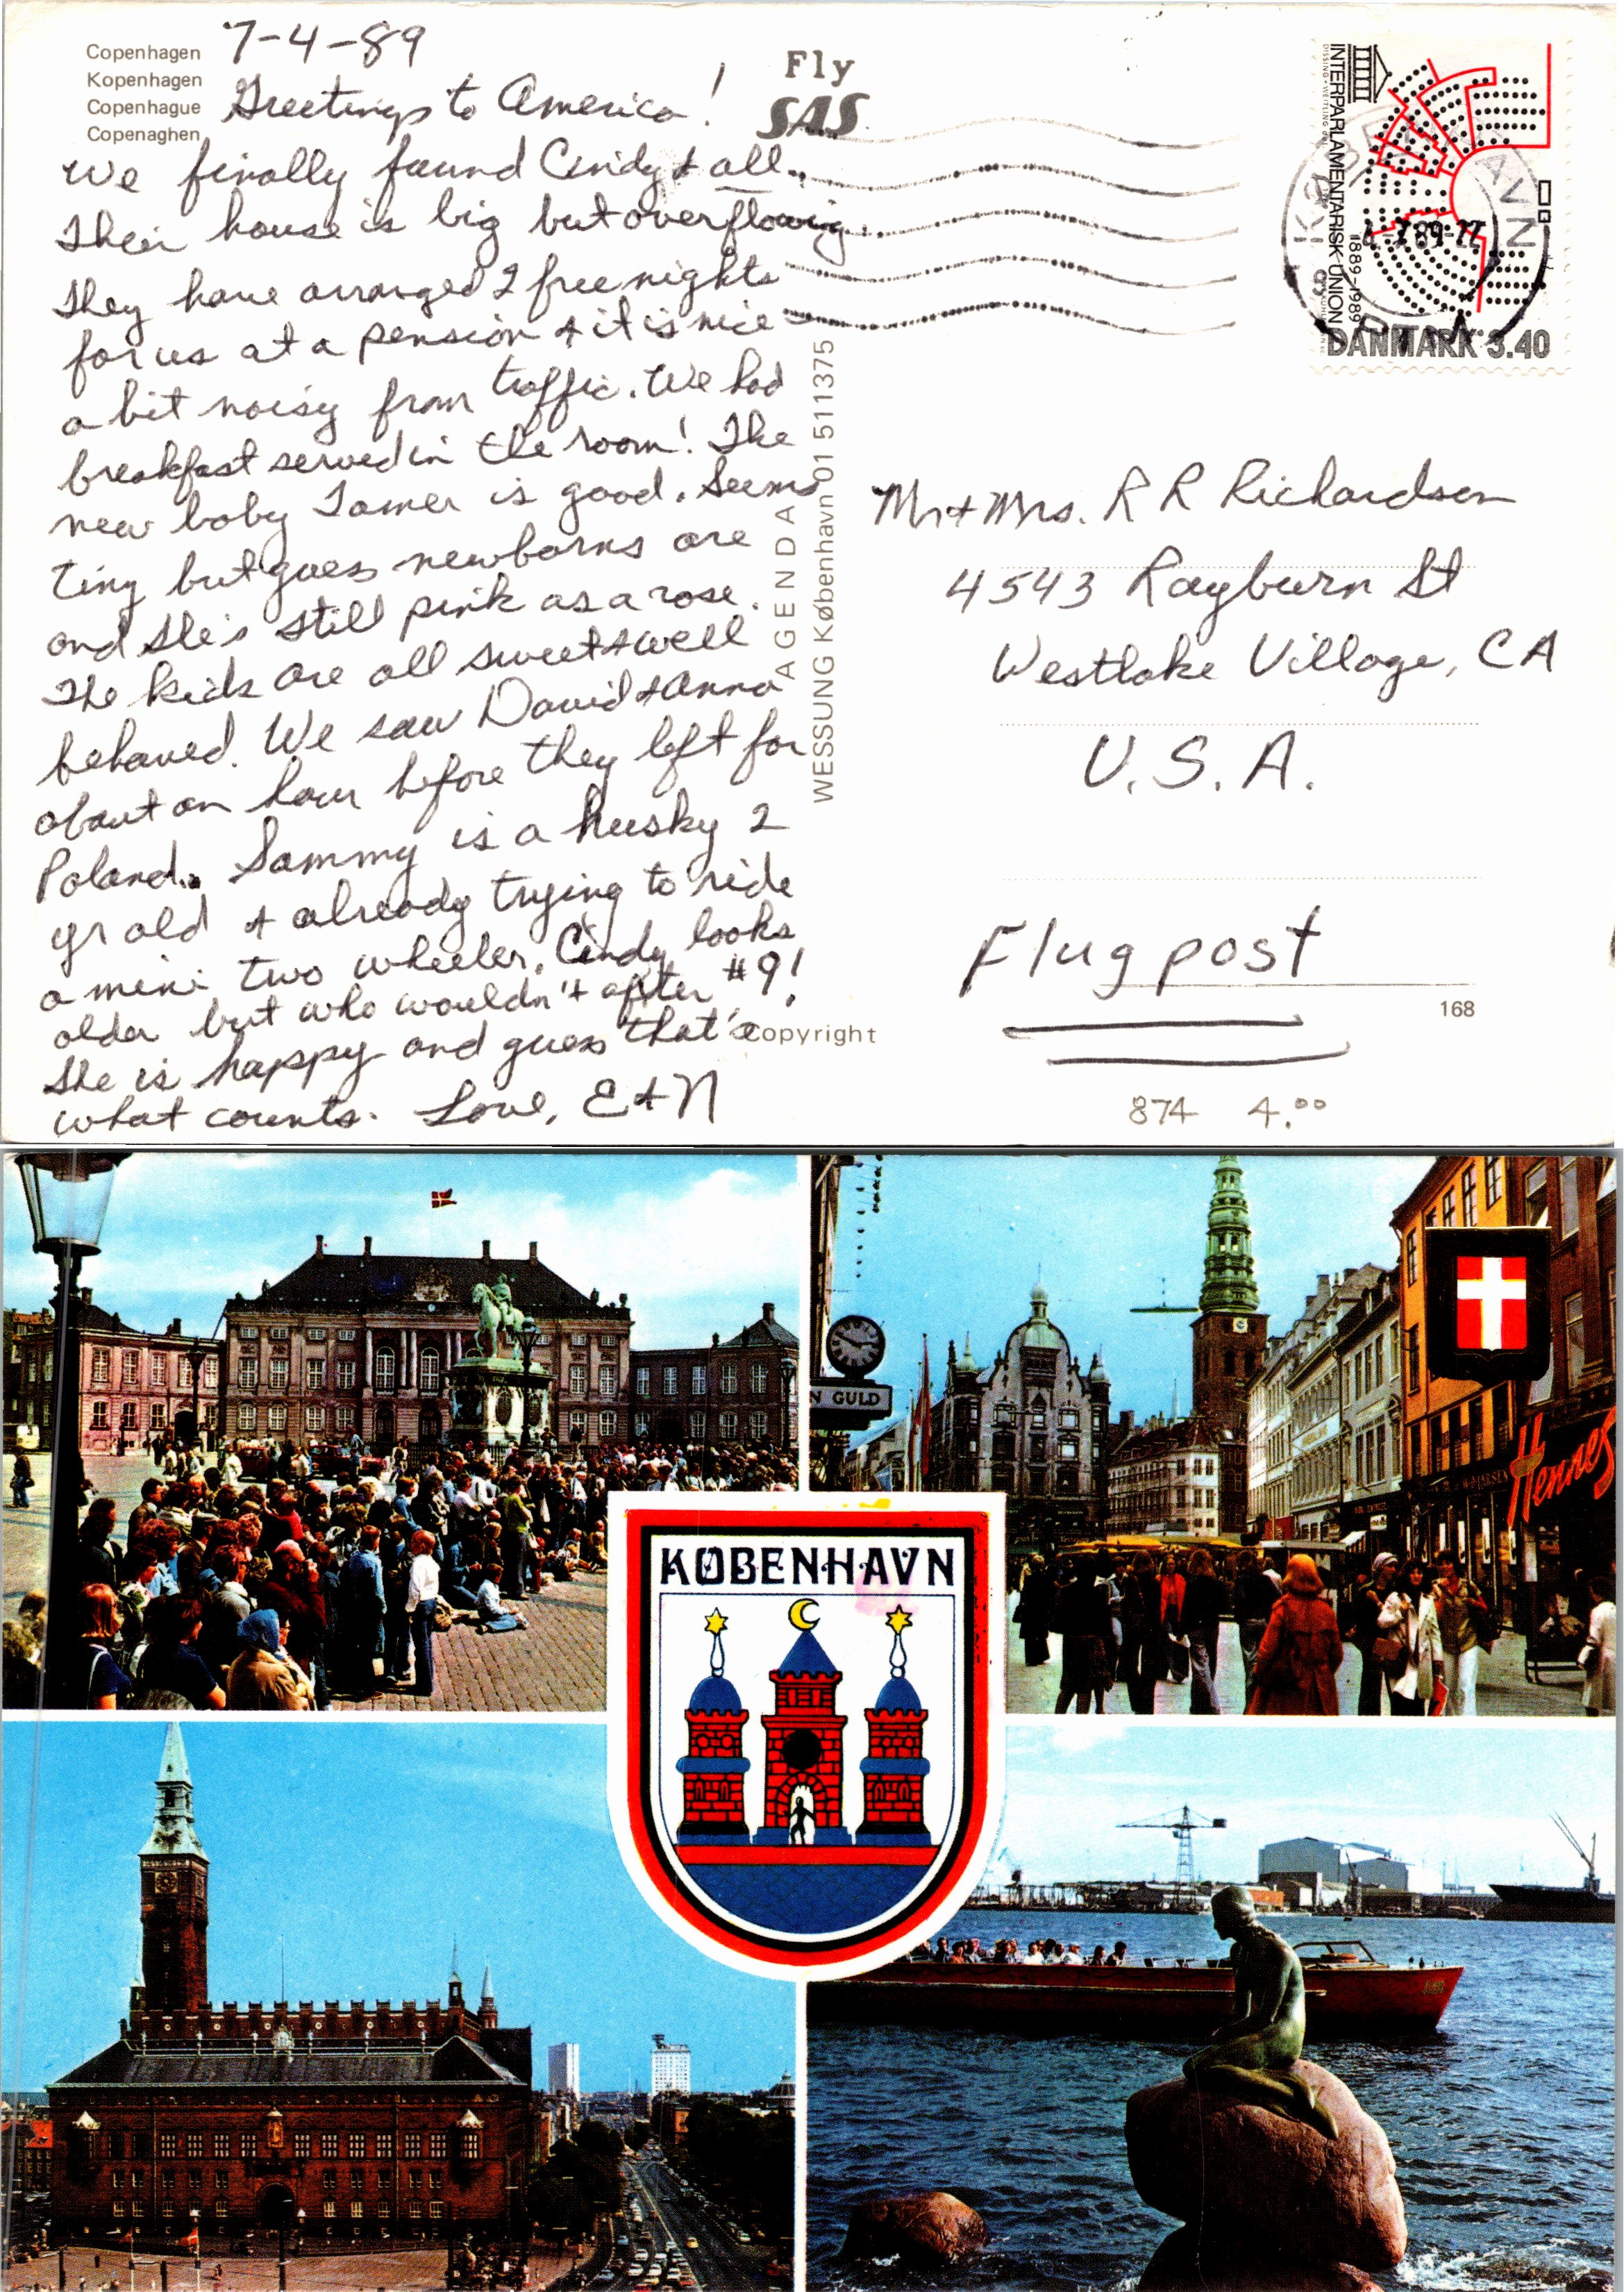 Copenhagen
Kopenhagen
Copenhague
Copenaghen
7-4-89
Greetings to America!
We finally found Cindy & all.
Their house is big but overflowing
They have arranged 2 free nights
for us at a pension & it is nice
a bit noisy from traffic. We had
breakfast served in the room! The
new baby Tamer is good. Seems
tiny but guess newborns are
and she's still pink as a rose.
The kids are all sweet & well
behaved. We saw David & Anna
about an hour before they left for
Poland. Sammy is a husky 2
yr old & already trying to ride
a mini two wheeler. Cindy looks
older but who wouldn't after #9!
She is happy and guess that's
what counts. Love, E & N
Fly
SAS
AGENDA
WESSUNG København 01 511375
Copyright
INTERPARLAMENTARISK UNION
1889-1989
DANMARK 3.40
KØBENHAVN
Mr + Mrs. R R Richardson
4543 Rayburn St
Westlake Village, CA
U.S.A.
Flugpost
168
874 4.00
N GULD
Hennes
KØBENHAVN